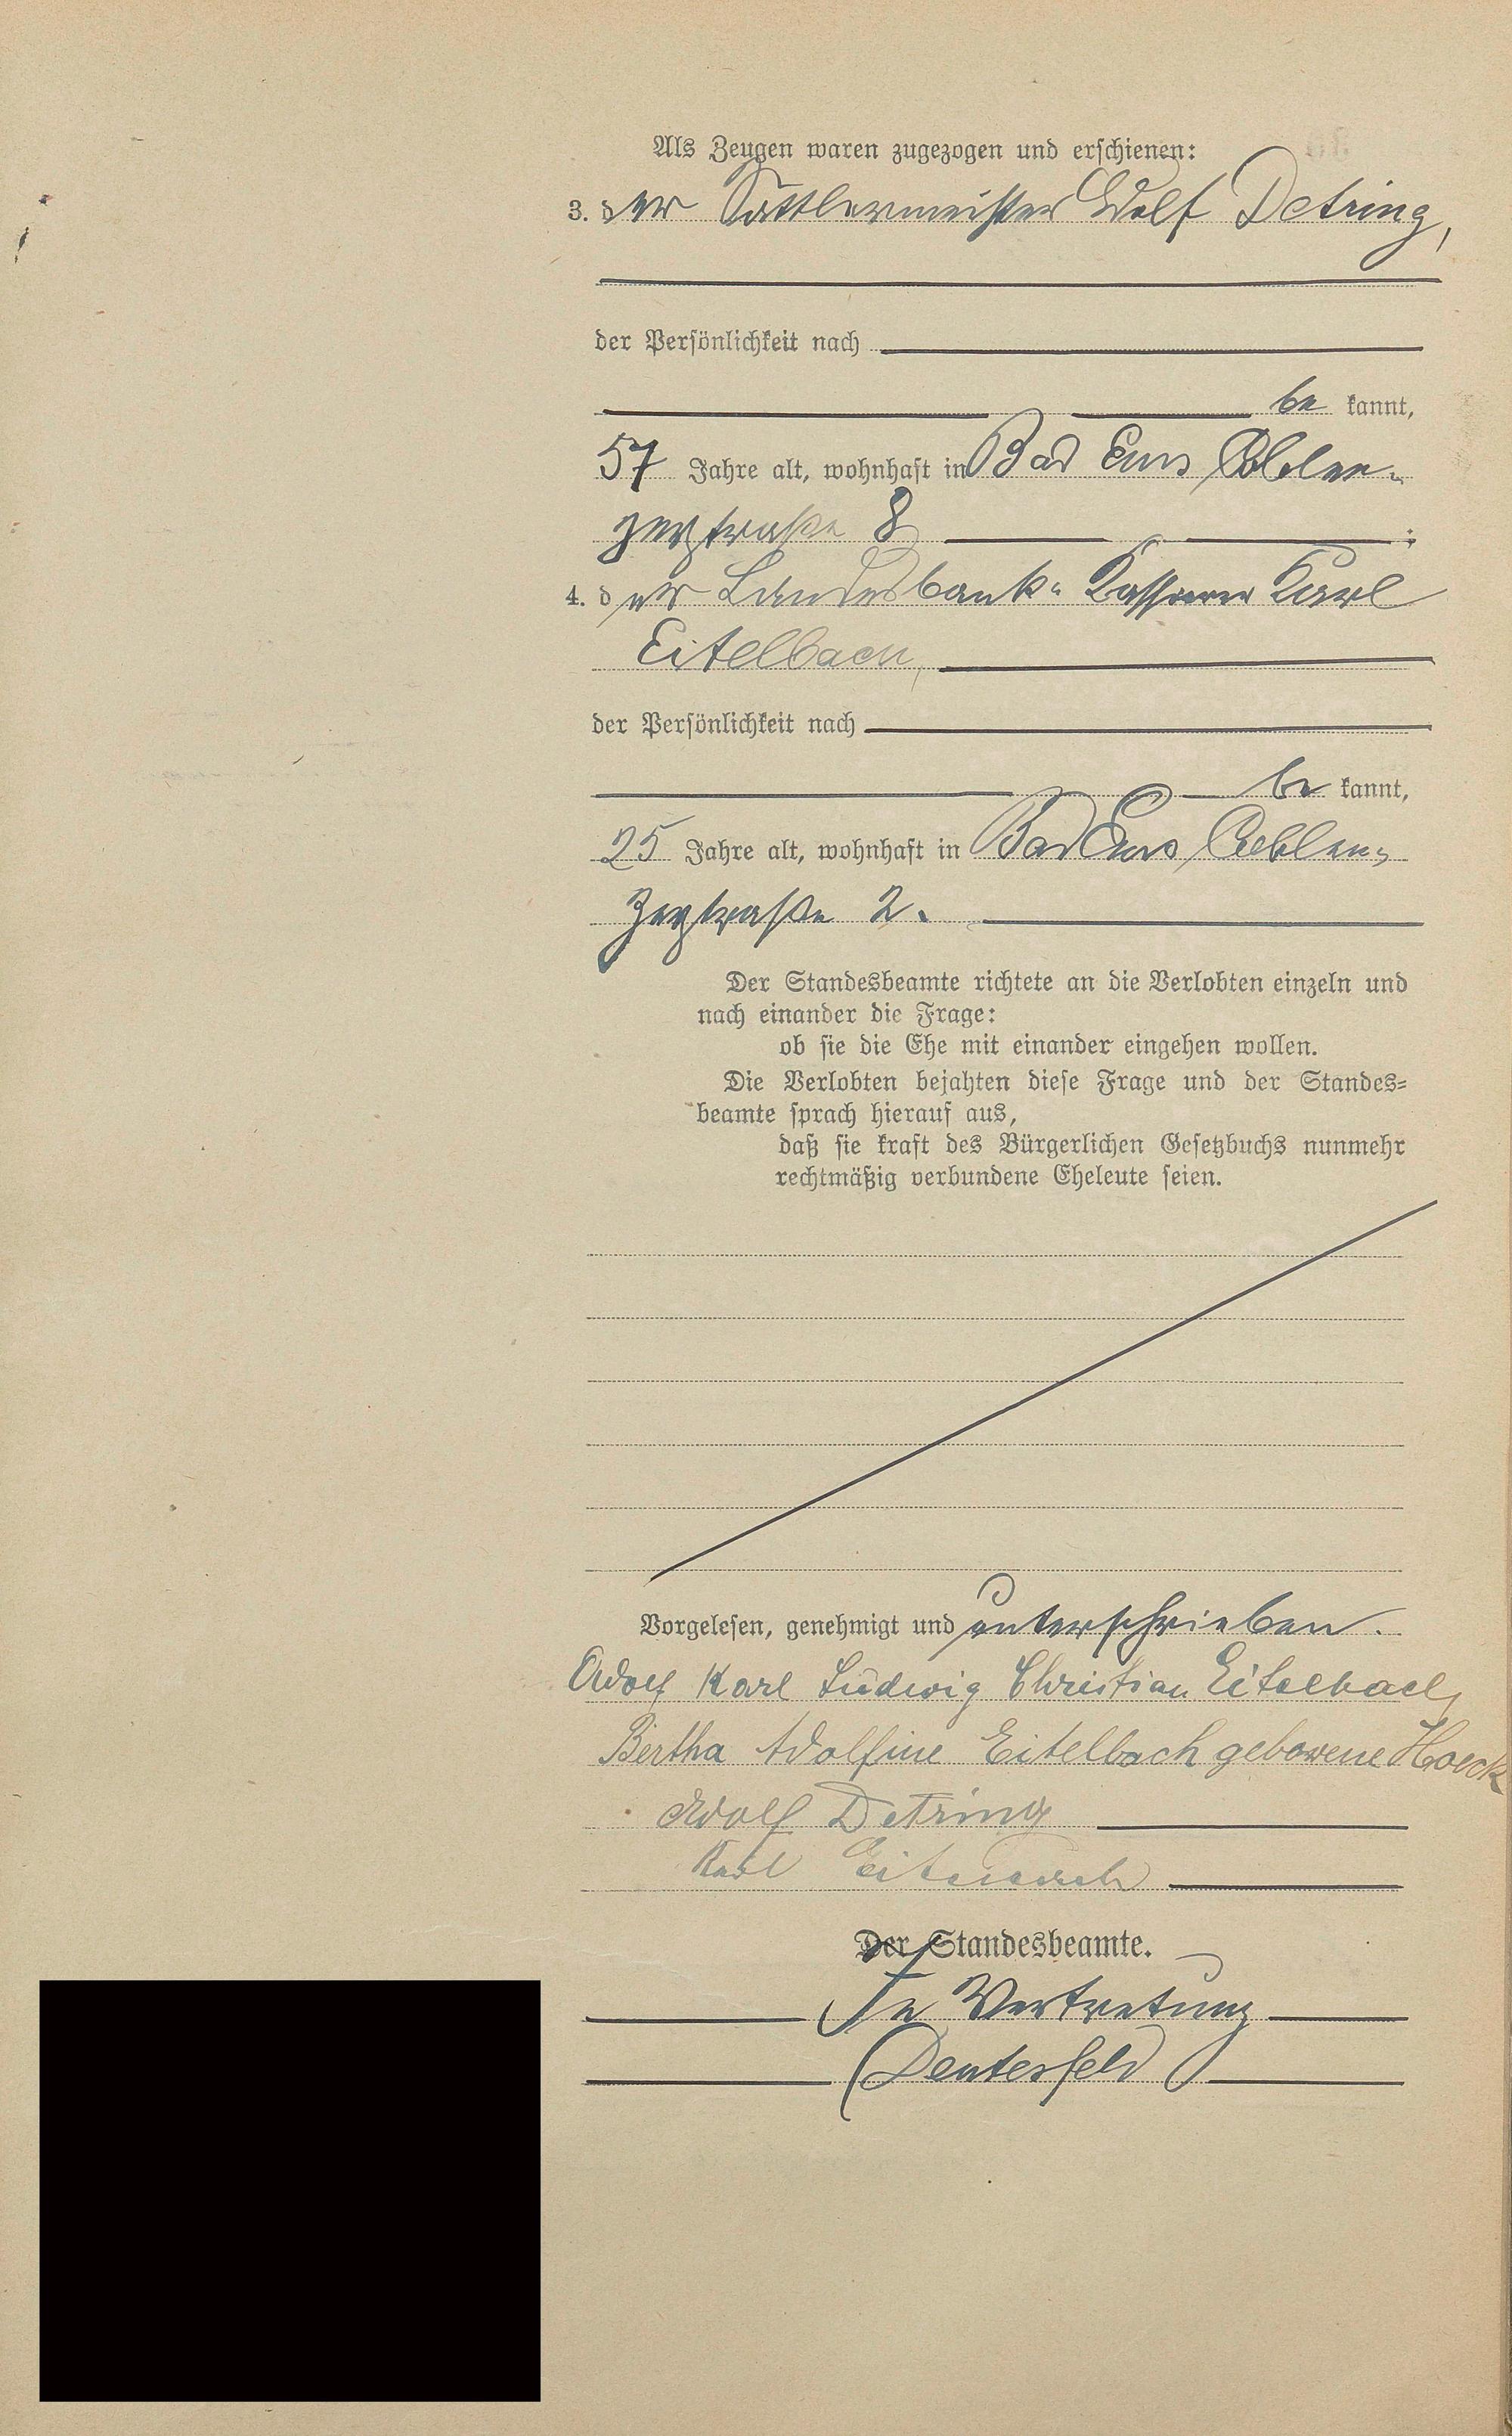 Als Zeugen waren zugezogen und erschienen:
3. der Sattlermeister Adolf Detring,
der Persönlichkeit nach
be kannt,
57 Jahre alt, wohnhaft in Bad Ems Coblen-
zerstraße 8 ;
4. der Landesbank- Kassierer Karl
Eitelbach,
der Persönlichkeit nach
be kannt,
25 Jahre alt, wohnhaft in Bad Ems, Coblen-
zerstraße 2.
Der Standesbeamte richtete an die Verlobten einzeln und
nach einander die Frage:
ob sie die Ehe mit einander eingehen wollen.
Die Verlobten bejahten diese Frage und der Standes=
beamte sprach hierauf aus,
daß sie kraft des Bürgerlichen Gesetzbuchs nunmehr
rechtmäßig verbundene Eheleute seien.
Vorgelesen, genehmigt und unterschrieben.
Adolf Karl Ludwig Christian Eitelbach
Bertha Adolfine Eitelbach geborene Hoeck
Adolf Detring
Karl Eitelbach
Der Standesbeamte.
In Vertretung